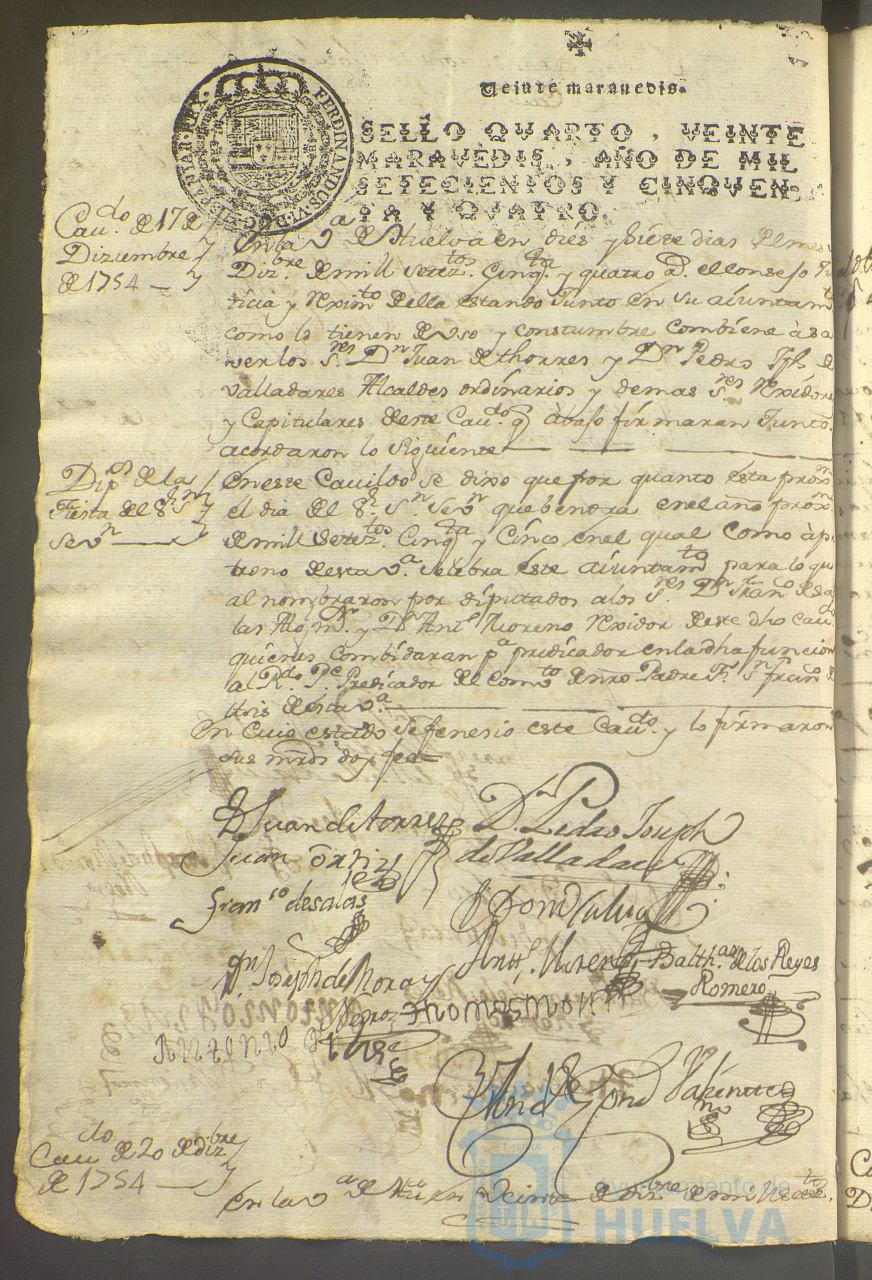 Veinte marauedis.
SELLO QVARTO, VEINTE
MARAVEDIS, AÑO DE MIL
SETECIENTOS Y CINQVEN-
TA Y QVATRO.
FERDINANDUS VI D G HISPANIAR REX
Cau.do de 17 de
Diziembre
de 1754
En la V.a de Huelva en dies y siete dias del mes
Diz.bre de mill setez.tos Cinq.ta y quatro a.s el consejo Jus
ticia y Rexim.to de ella estando Junto en su aiuntam.to
como lo tienen de Vso y constumbre combiene à sa
ver los S.res D.n Juan de thorres y D.n Pedro Jph. de
valladares Alcaldes ordinarios y demas S.res Rexidores
y Capitulares deste Cau.do q àbajo firmaran Junto.
acordaron lo siguiente
Dip.s de la
fiesta del S.r S.n
Seu.n
En este Cauildo se dixo que por quanto esta prox.mo
el dia del S.r S.n Seu.n que bendra en el año prox.mo
de mill setez.tos Cinq.ta y Cinco en el qual como à pa
trono desta V.a selebra este aiuntam.to para lo qu
al nombraron por diputados a los S.res D.n Fran.co de sa
las y D.n Ant.o Moreno Rexidor deste dho Cau.do
quienes combidaran p.a predicador en la dha funcion
al R.do P.e Predicador del Com.to de nro Padre S.n Fran.co de
Asis desta V.a
En cuio estado se fenesio este Cau.do y lo firmaron
sus mrds doy fee
D Juan de torres
D.n Pedro Joseph
de Valladares
Juan Ortiz
Fran.co de salas
D.n Joseph de Mora y
Negro
Antt.o Moreno
Balth.ar de los Reyes
Romero
Thomas
Antonio
Cau.do de 20 de diz.bre
de 1754
En la V.a de en veinte de diz.bre de mill setez.tos
Ayuntamiento de
HUELVA